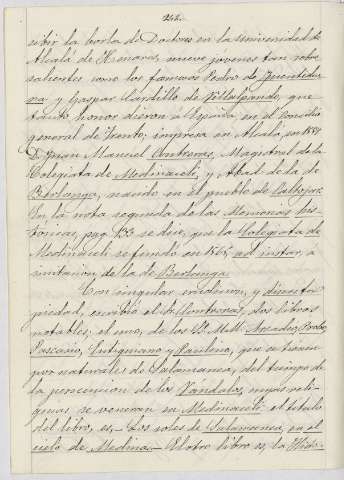 242.
cibir la borla de Doctores en la Universidad de
Alcalá de Henares, nueve jóvenes tan sobre
salientes como los famosos Pedro de Fuentidue
ña y Gaspar Cardillo de Villalpando, que
tanto honor dieron á España en el Concilio
general de Trento; impresa en Alcalá, en
D. Juan Manuel Contreras, Magistral de la
Colegiata de Medinaceli, y Abad de la de
Berlanga, nacido en el pueblo de
En la nota segunda de las Memorias his
tóricas, pag. 133 se dice, que la Colegiata de
Medinaceli se fundó en ad instar, á
imitacion de la de Berlanga.
Con singular erudicion, y discreta
piedad, escribió el Sr. Contreras, dos libros
notables; el uno, de los S.S. M.M. Arcadio, Probo,
Pascasio, Eutiquiano y Paulino, que se tienen
por naturales de Salamanca, del tiempo de
la persecucion de los Vándalos, cuyas reli
quias, se veneran en Medinaceli: el título
del libro, es - Los soles de Salamanca, en el
cielo de Medina. - El otro libro es, la Histo-